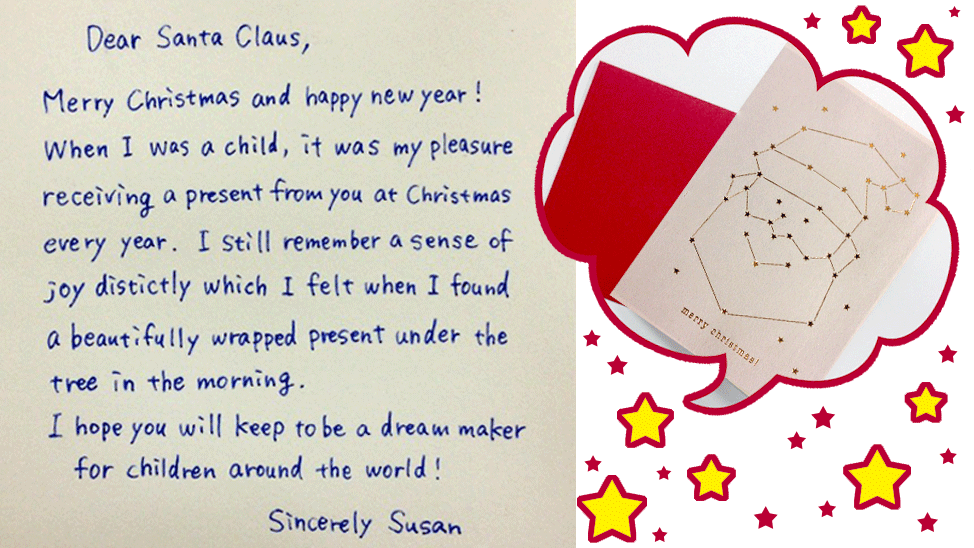 Dear Santa Claus,
Merry Christmas and happy new year!
When I was a child, it was my pleasure
receiving a present from you at Christmas
every year. I still remember a sense of
joy distictly which I felt when I found
a beautifully wrapped present under the
tree in the morning.
I hope you will keep to be a dream maker
for children around the world!
Sincerely Susan
merry christmas!